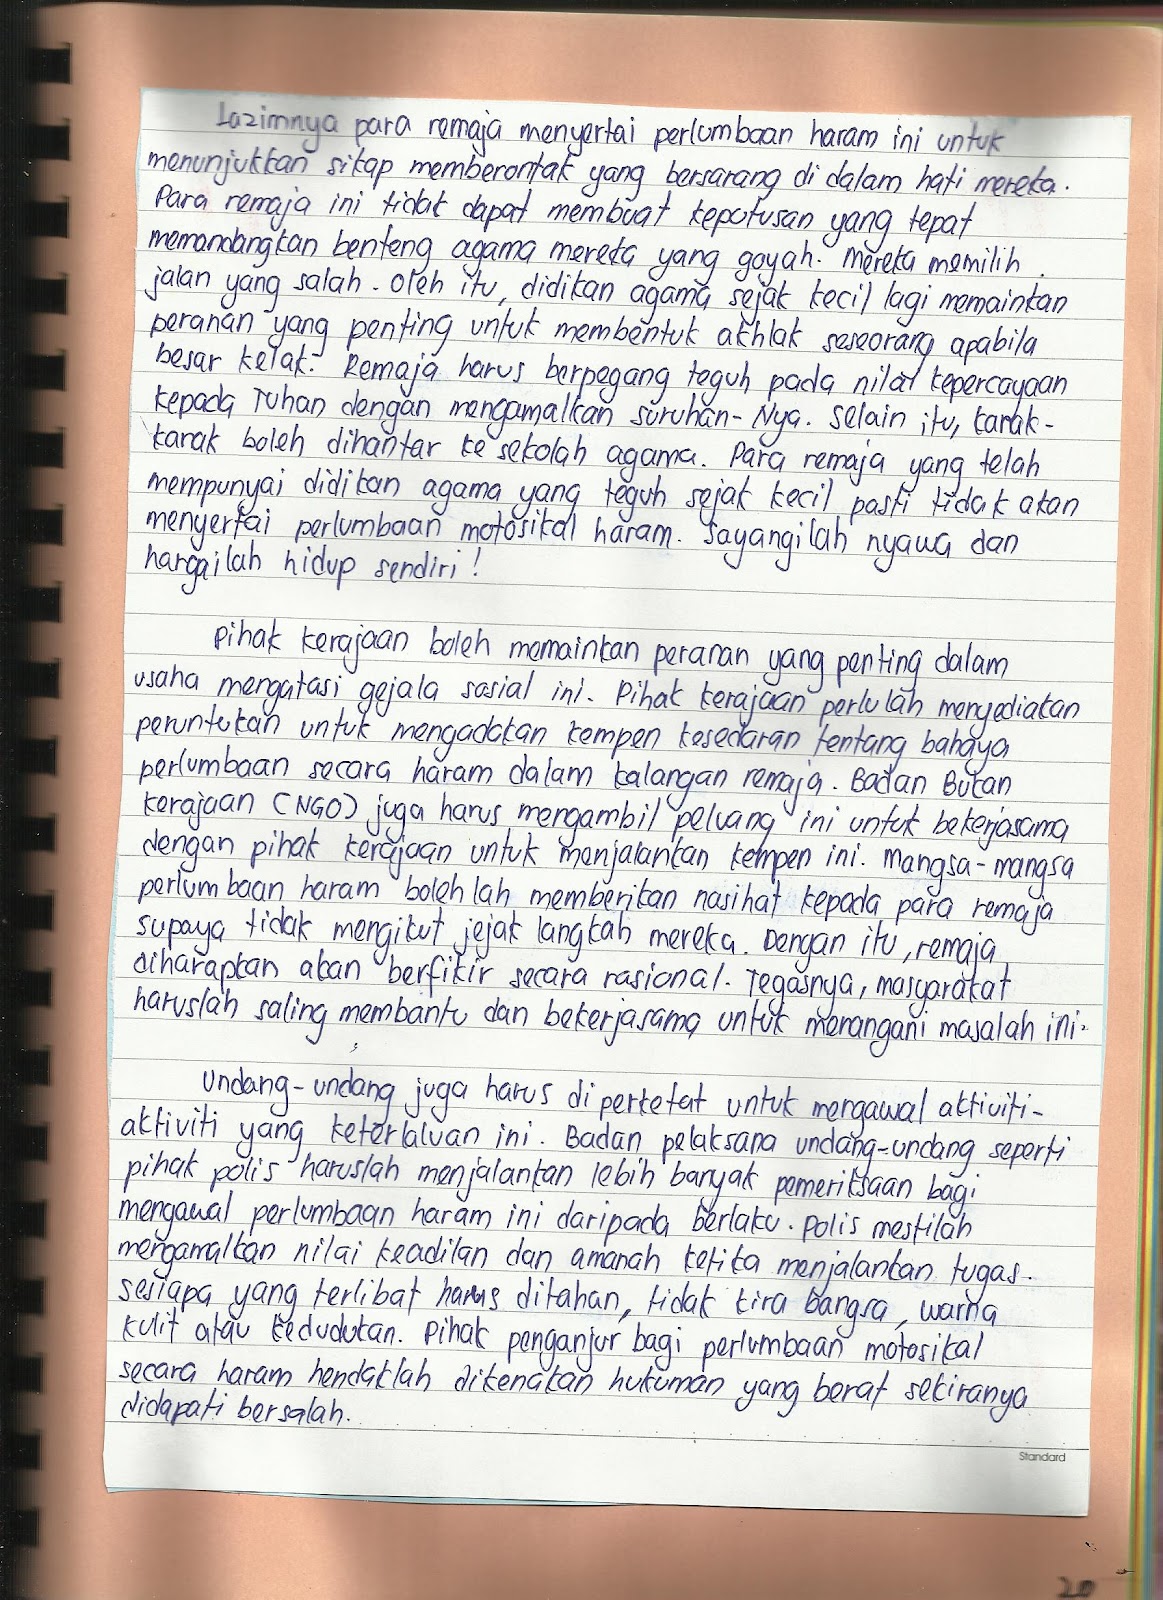 Lazimnya para remaja menyertai perlumbaan haram ini untuk
menunjukkan sikap memberontak yang bersarang di dalam hati mereka.
Para remaja ini tidak dapat membuat keputusan yang tepat
memandangkan benteng agama mereka yang goyah. Mereka memilih
jalan yang salah. Oleh itu, didikan agama sejak kecil lagi memainkan
peranan yang penting untuk membentuk akhlak seseorang apabila
besar kelak. Remaja harus berpegang teguh pada nilai kepercayaan
kepada Tuhan dengan mengamalkan suruhan-Nya. Selain itu, kanak-
kanak boleh dihantar ke sekolah agama. Para remaja yang telah
mempunyai didikan agama yang teguh sejak kecil pasti tidak akan
menyertai perlumbaan motosikal haram. Sayangilah nyawa dan
hargailah hidup sendiri!
Pihak kerajaan boleh memainkan peranan yang penting dalam
usaha mengatasi gejala sosial ini. Pihak kerajaan perlulah menyediakan
peruntukan untuk mengadakan kempen kesedaran tentang bahaya
perlumbaan secara haram dalam kalangan remaja. Badan Bukan
Kerajaan (NGO) juga harus mengambil peluang ini untuk bekerjasama
dengan pihak kerajaan untuk menjalankan kempen ini. Mangsa-mangsa
perlumbaan haram bolehlah memberikan nasihat kepada para remaja
supaya tidak mengikut jejak langkah mereka. Dengan itu, remaja
diharapkan akan berfikir secara rasional. Tegasnya, masyarakat
haruslah saling membantu dan bekerjasama untuk menangani masalah ini.
Undang-undang juga harus diperketat untuk mengawal aktiviti-
aktiviti yang keterlaluan ini. Badan pelaksana undang-undang seperti
pihak polis haruslah menjalankan lebih banyak pemeriksaan bagi
mengawal perlumbaan haram ini daripada berlaku. Polis mestilah
mengamalkan nilai keadilan dan amanah ketika menjalankan tugas.
Sesiapa yang terlibat harus ditahan, tidak kira bangsa, warna
kulit atau kedudukan. Pihak penganjur bagi perlumbaan motosikal
secara haram hendaklah dikenakan hukuman yang berat sekiranya
didapati bersalah.
Standard
20